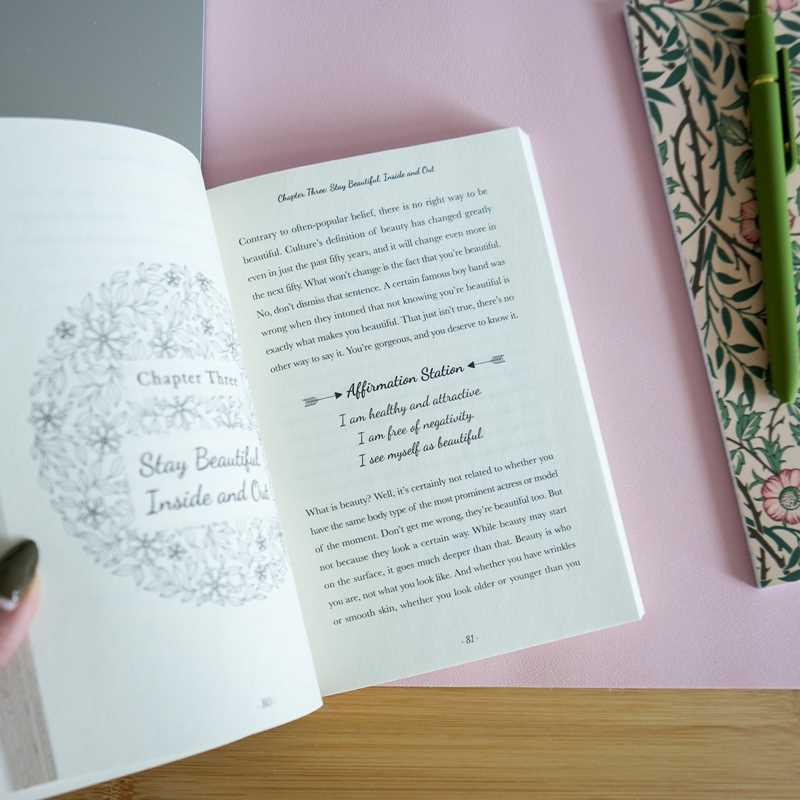 Chapter Three
Stay Beautiful,
Inside and Out
- 80 -
Chapter Three: Stay Beautiful, Inside and Out
Contrary to often-popular belief, there is no right way to be
beautiful. Culture's definition of beauty has changed greatly
even in just the past fifty years, and it will change even more in
the next fifty. What won't change is the fact that you're beautiful.
No, don't dismiss that sentence. A certain famous boy band was
wrong when they intoned that not knowing you're beautiful is
exactly what makes you beautiful. That just isn't true, there's no
other way to say it. You're gorgeous, and you deserve to know it.
Affirmation Station
I am healthy and attractive.
I am free of negativity.
I see myself as beautiful.
What is beauty? Well, it's certainly not related to whether you
have the same body type of the most prominent actress or model
of the moment. Don't get me wrong, they're beautiful too. But
not because they look a certain way. While beauty may start
on the surface, it goes much deeper than that. Beauty is who
you are, not what you look like. And whether you have wrinkles
or smooth skin, whether you look older or younger than you
- 81 -